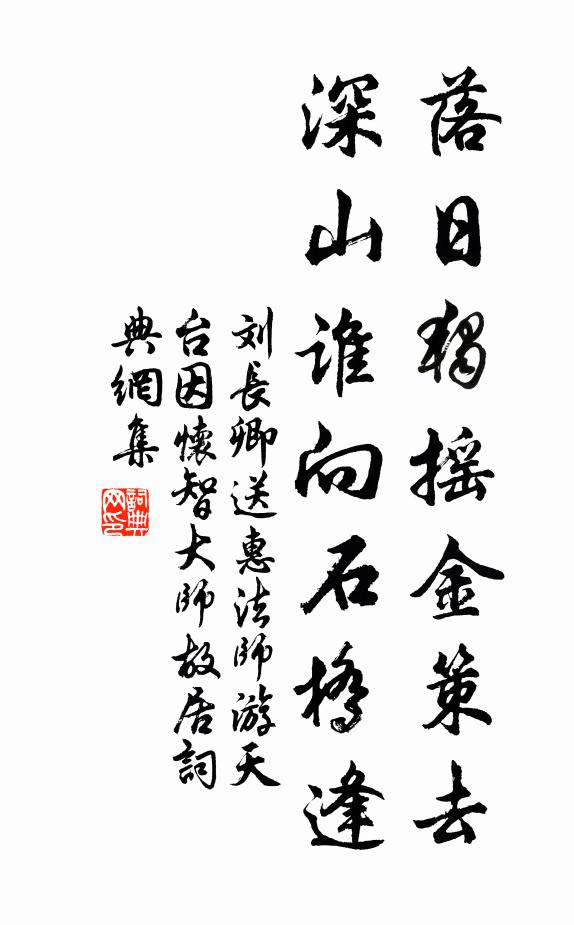 落日独摇金策去
深山谁向石橋逢
刘長卿送惠法師游天
台因懷智大師故居詞
典網集
詞典網印